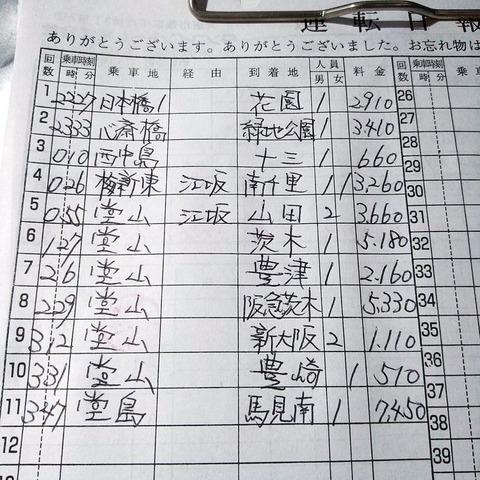 運転日報
ありがとうございます。ありがとうございました。お忘れ物は
回数 乗車時刻 時 分 乗車地 経由 到着地 人員 男 女 料金 回数 乗車
1 22 27 日本橋1 花園 1 2910 26
2 23 33 心斎橋 緑地公園 1 3410 27
3 0 10 西中島 十三 1 660 28
4 0 26 梅新東 江坂 南千里 1 1 3.260 29
5 0 55 堂山 江坂 山田 2 3.660 31
6 1 27 堂山 茨木 1 5.180 32
7 2 6 堂山 豊津 1 2.160 33
8 2 29 堂山 阪急茨木 1 5.330 34
9 3 12 堂山 新大阪 2 1.110 35
10 3 31 堂山 豊崎 1 510 36
11 3 47 堂島 馬見南 1 7,450 37
12 38
39
30